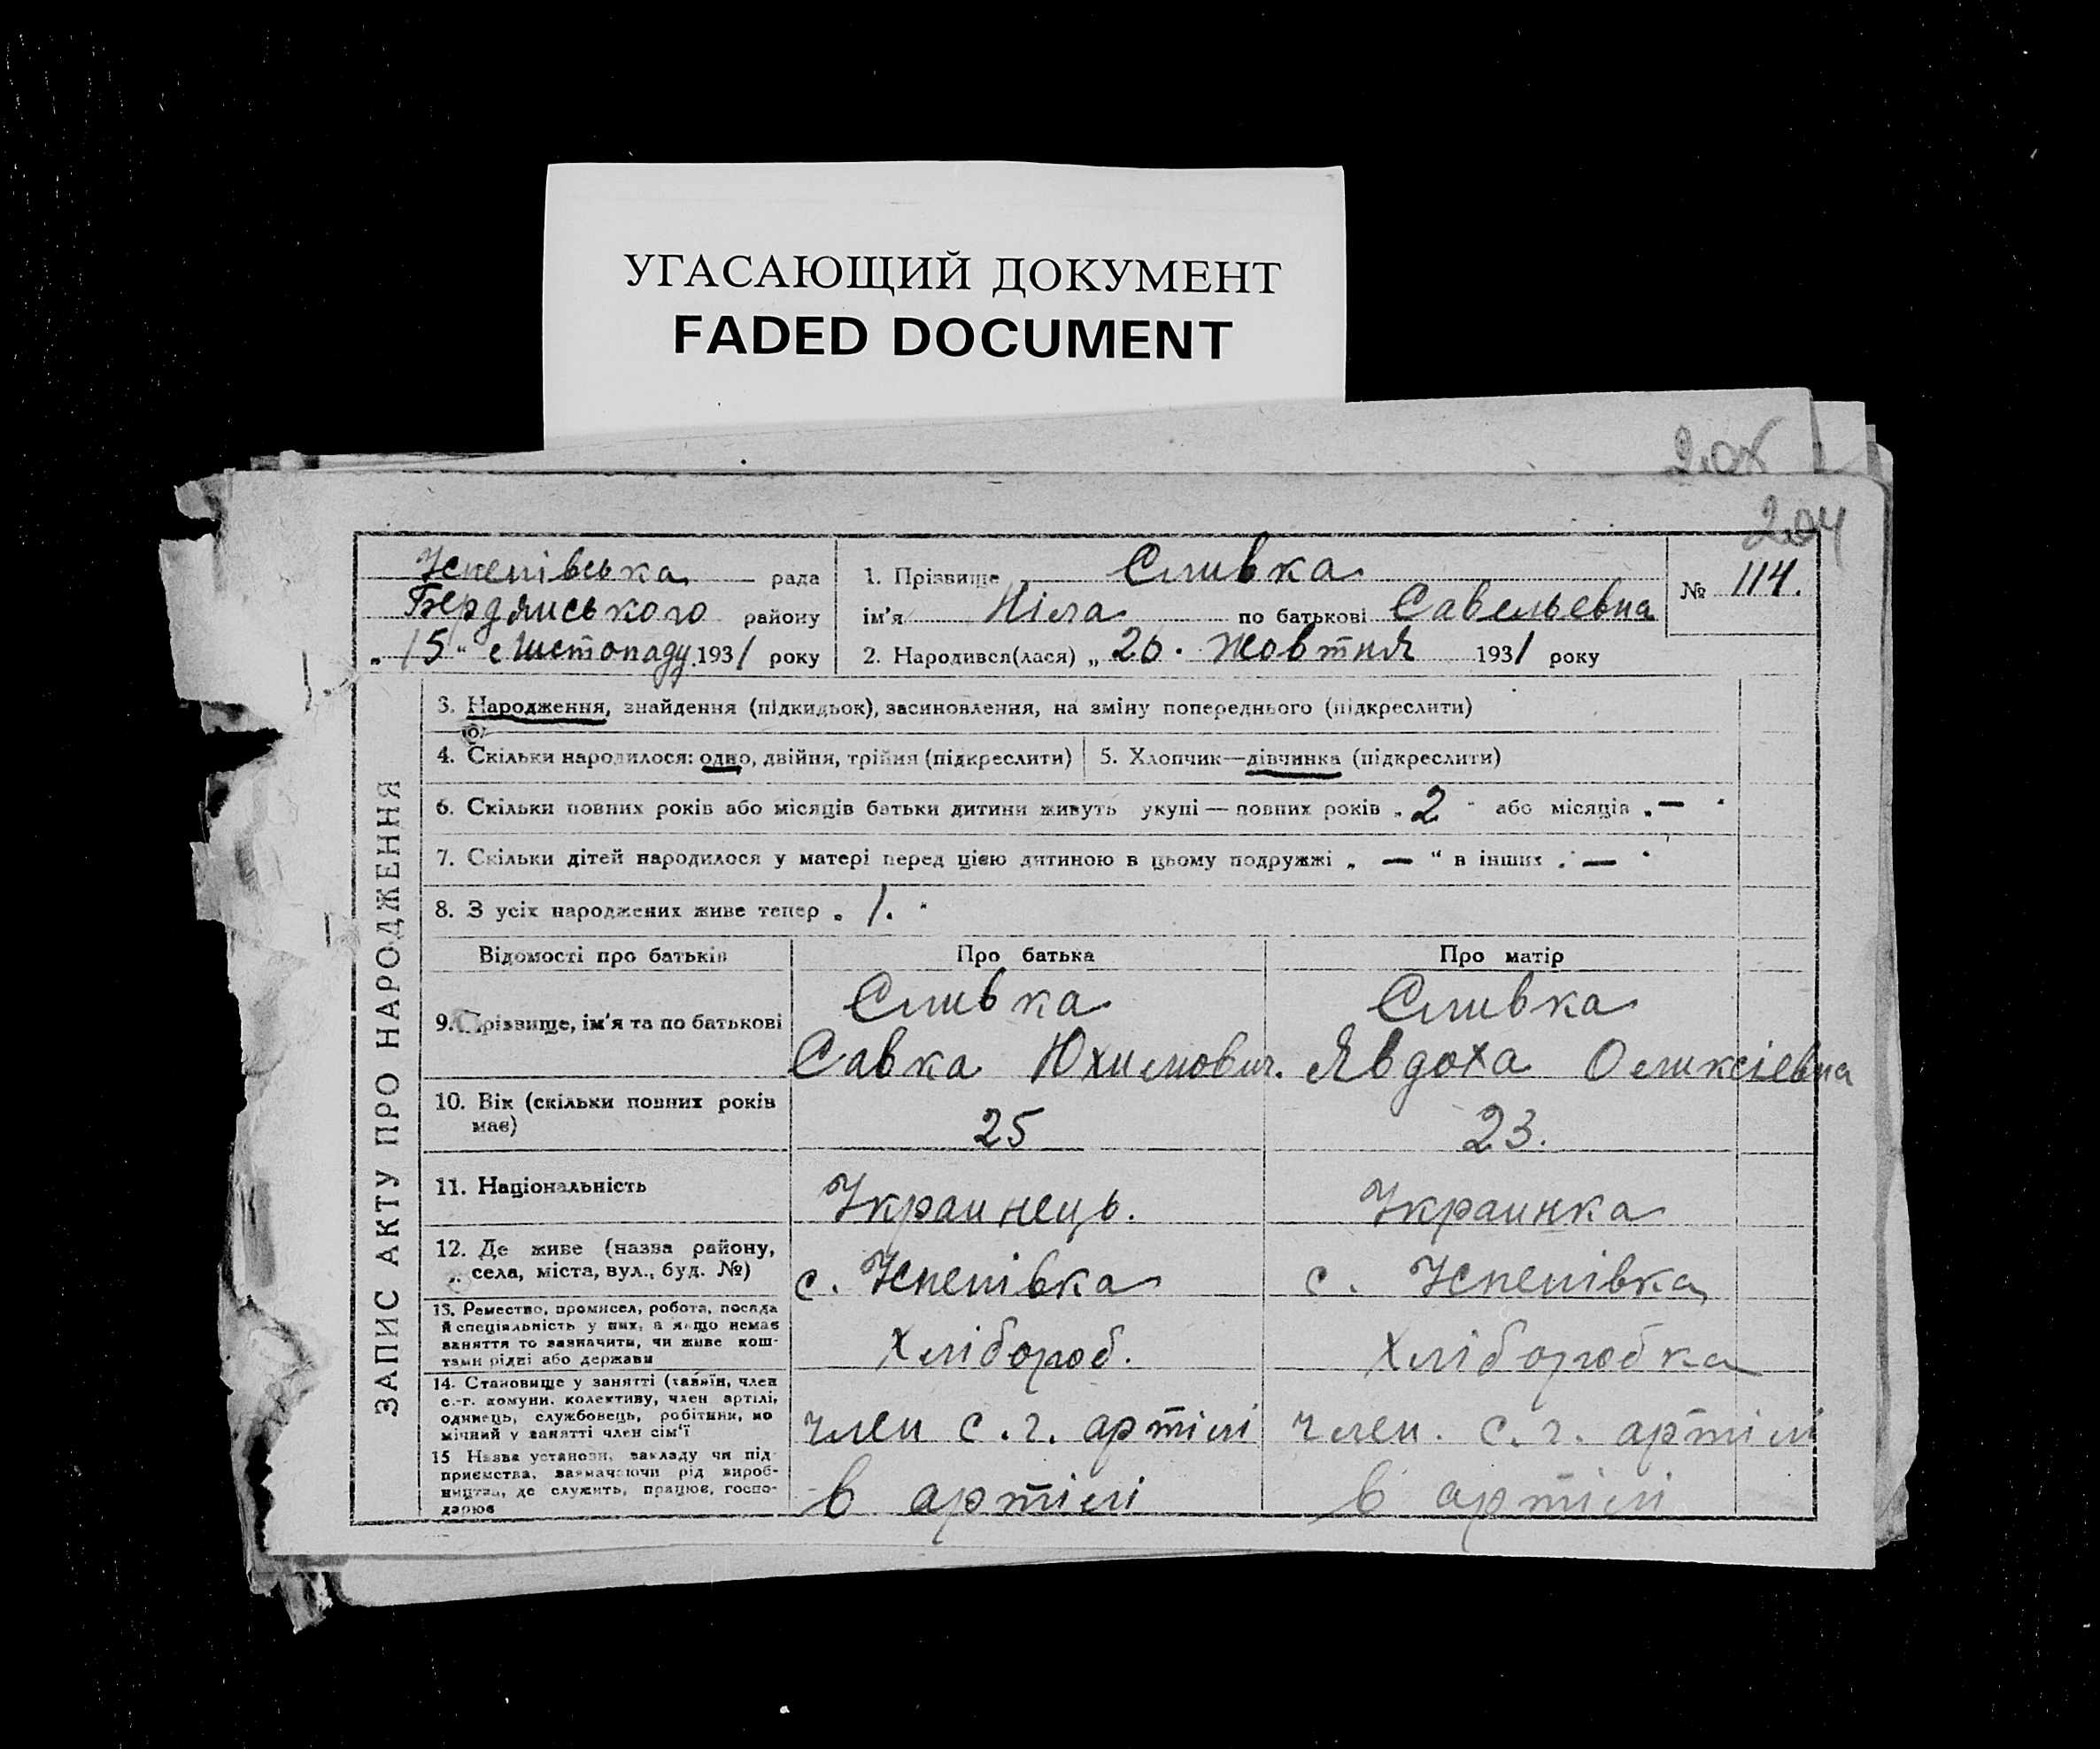 УГАСАЮЩИЙ ДОКУМЕНТ
FADED DOCUMENT
204
Успенівська рада
Бердянського району
„15“ Листопаду 1931 року
1. Прізвище Сливка
ім'я Ніла по батькові Савельевна
2. Народився(лася) „26. Жовтня 1931 року
№ 114.
ЗАПИС АКТУ ПРО НАРОДЖЕННЯ
3. Народження, знайдення (підкидьок), засиновлення, на зміну попереднього (підкреслити)
4. Скільки народилося: одно, двійня, трійня (підкреслити)
5. Хлопчик—дівчинка (підкреслити)
6. Скільки повних років або місяців батьки дитини живуть укупі — повних років „2" або місяців „—"
7. Скільки дітей народилося у матері перед цією дитиною в цьому подружжі „—“ в інших „—"
8. З усіх народжених живе тепер „1."
Відомості про батьків Про батька Про матір
9. Прізвище, ім'я та по батькові
Сливка
Савка Юхимович.
Сливка
Явдоха Оликсіевна
10. Вік (скільки повних років
має)
25
23.
11. Національність
Украинець.
Украинка
12. Де живе (назва району,
села, міста, вул., буд. №)
с. Успенівка
с. Успенівка
13. Ремество, промисел, робота, посада
й спеціяльність у них, а якщо немає
заняття то зазначити, чи живе кош-
тами рідні або держави
Хлібороб.
Хліборобка
14. Становище у занятті (хазяїн, член
с.-г. комуни, колективу, член артілі,
одинець, службовець, робітник, по
мічний у занятті член сім'ї
член с.г. артілі
член. с.г. артілі
15 Назва установи, закладу чи під
приємства, зазначаючи рід вироб-
ництва, де служить, працює, госпо-
дарює
в артілі
в артілі